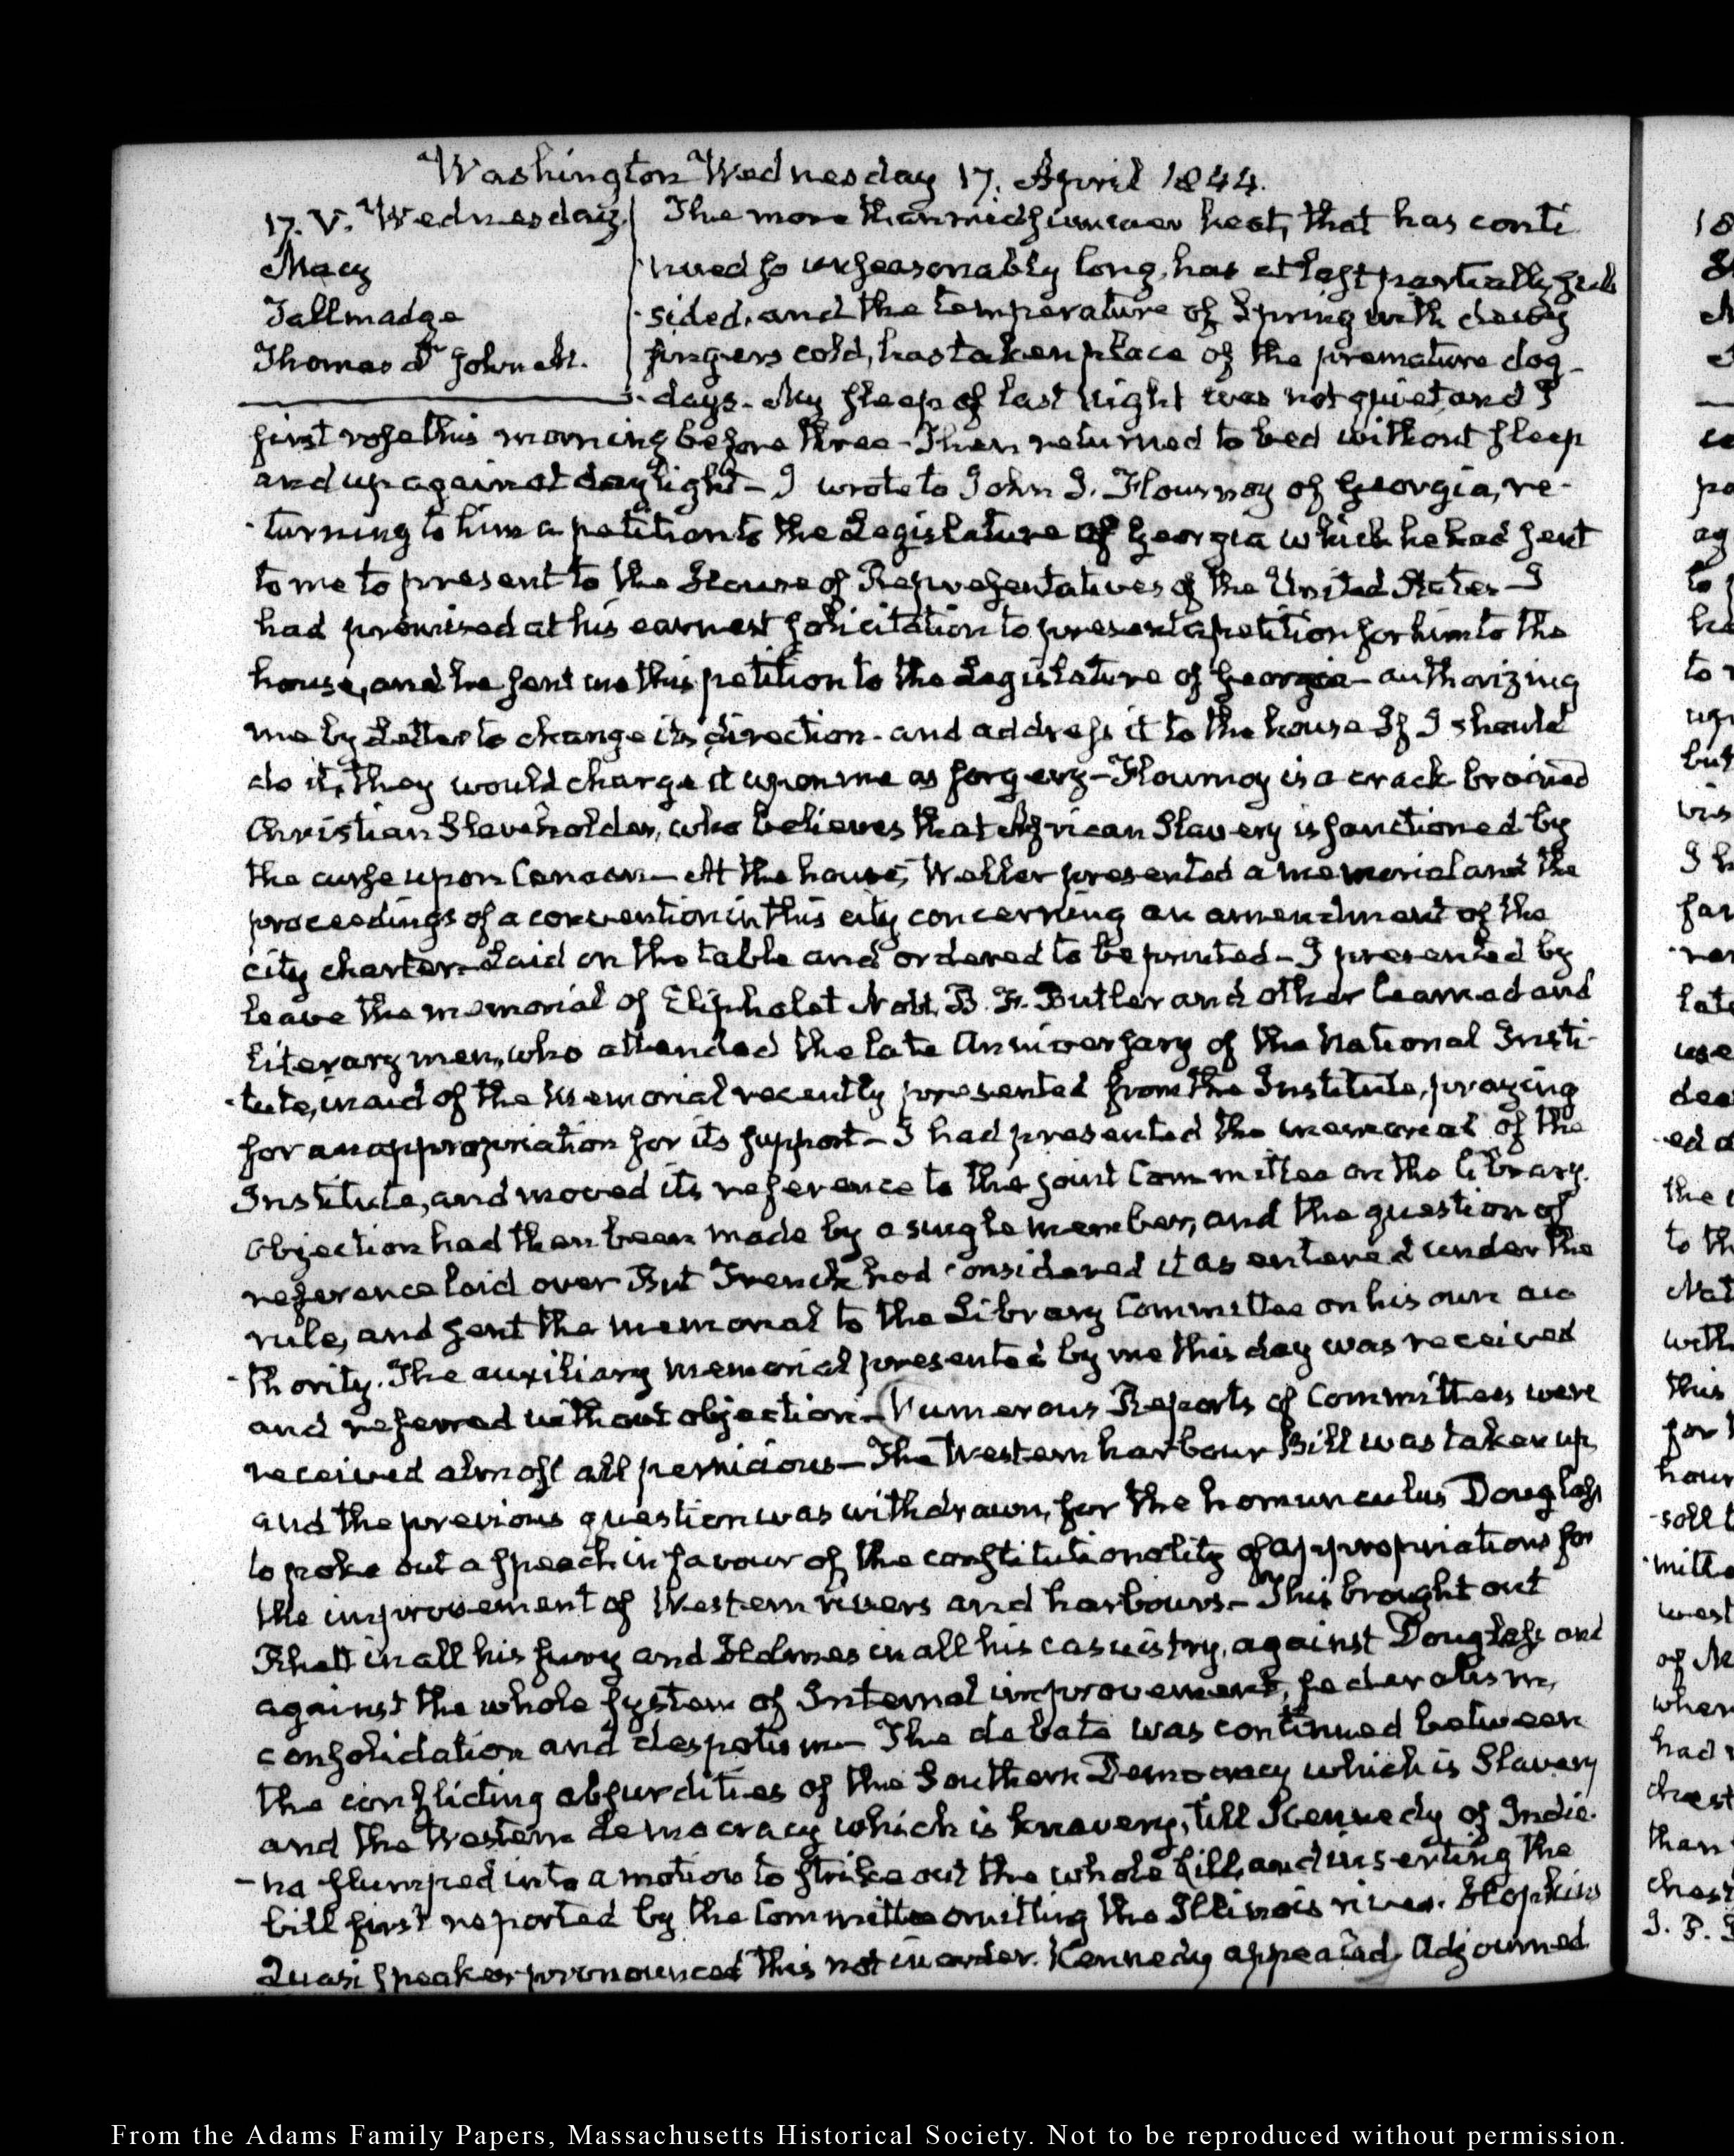 Washington Wednesday 17. April 1844.
17. V. Wednesday
Macy
Tallmadge
Thomas
The more than midsummer heat, that has conti
nued so unseasonably long, has at last partially sub
sided, and the temperature of Spring with dewy
fingers cold, has taken place of the premature dog-
days. My sleep of last night was not quiet and I
first rose this morning before three - Then returned to bed without sleep
and up against daylight - I wrote to John J. Flournoy of Georgia, re-
turning to him a petition to the Legislature of Georgia which he had sent
to me to present to the House of Representatives of the United States - I
had promised at his earnest solicitation to present a petition for him to the
house, and he sent me this petition to the Legislature of Georgia - authorizing
me by Letter to change its direction and address it to the house If I should
do it, they would charge it upon me as forgery - Flournoy is a crack brained
Christian Slave holder, who believes that African Slavery is sanctioned by
the curse upon Canaan - At the house, Weller presented a memorial and the
proceedings of a convention in this city concerning an amendment of the
city charter - Laid on the table and ordered to be printed - I presented by
leave the memorial of Eliphalet Nott, B. F. Butler and other learned and
literary men, who attended the late Anniversary of the National Insti-
-tute, in aid of the Memorial recently presented from the Institute, praying
for an appropriation for its support - I had presented the memorial of the
Institute, and moved its reference to the joint Committee on the library.
objection had then been made by a single member, and the question of
reference laid over But French had considered it as entered under the
rule, and sent the memorial to the Library Committee on his own au
-thority. The auxiliary memorial presented by me this day was received
and referred without objection - Numerous Reports of Committees were
received almost all pernicious - The Western harbour Bill was taken up,
and the previous question was withdrawn, for the homunculus Douglass
to poke out a speech in favour of the constitutionality of appropriations for
the improvement of Western rivers and harbours - This brought out
Rhett in all his fury and Holmes in all his casuistry, against Douglass and
against the whole system of Internal improvement, federalism,
consolidation and despotism - The debate was continued between
the conflicting absurdities of the Southern Democracy which is Slavery
and the Western democracy which is knavery, till Kennedy of India-
-na slumped into a motion to strike out the whole bill, and inserting the
bill first reported by the Committee omitting the Illinois river. Hopkins
Quasi Speaker pronounced this not in order. Kennedy appealed, Adjourned
From the Adams Family Papers, Massachusetts Historical Society. Not to be reproduced without permission.